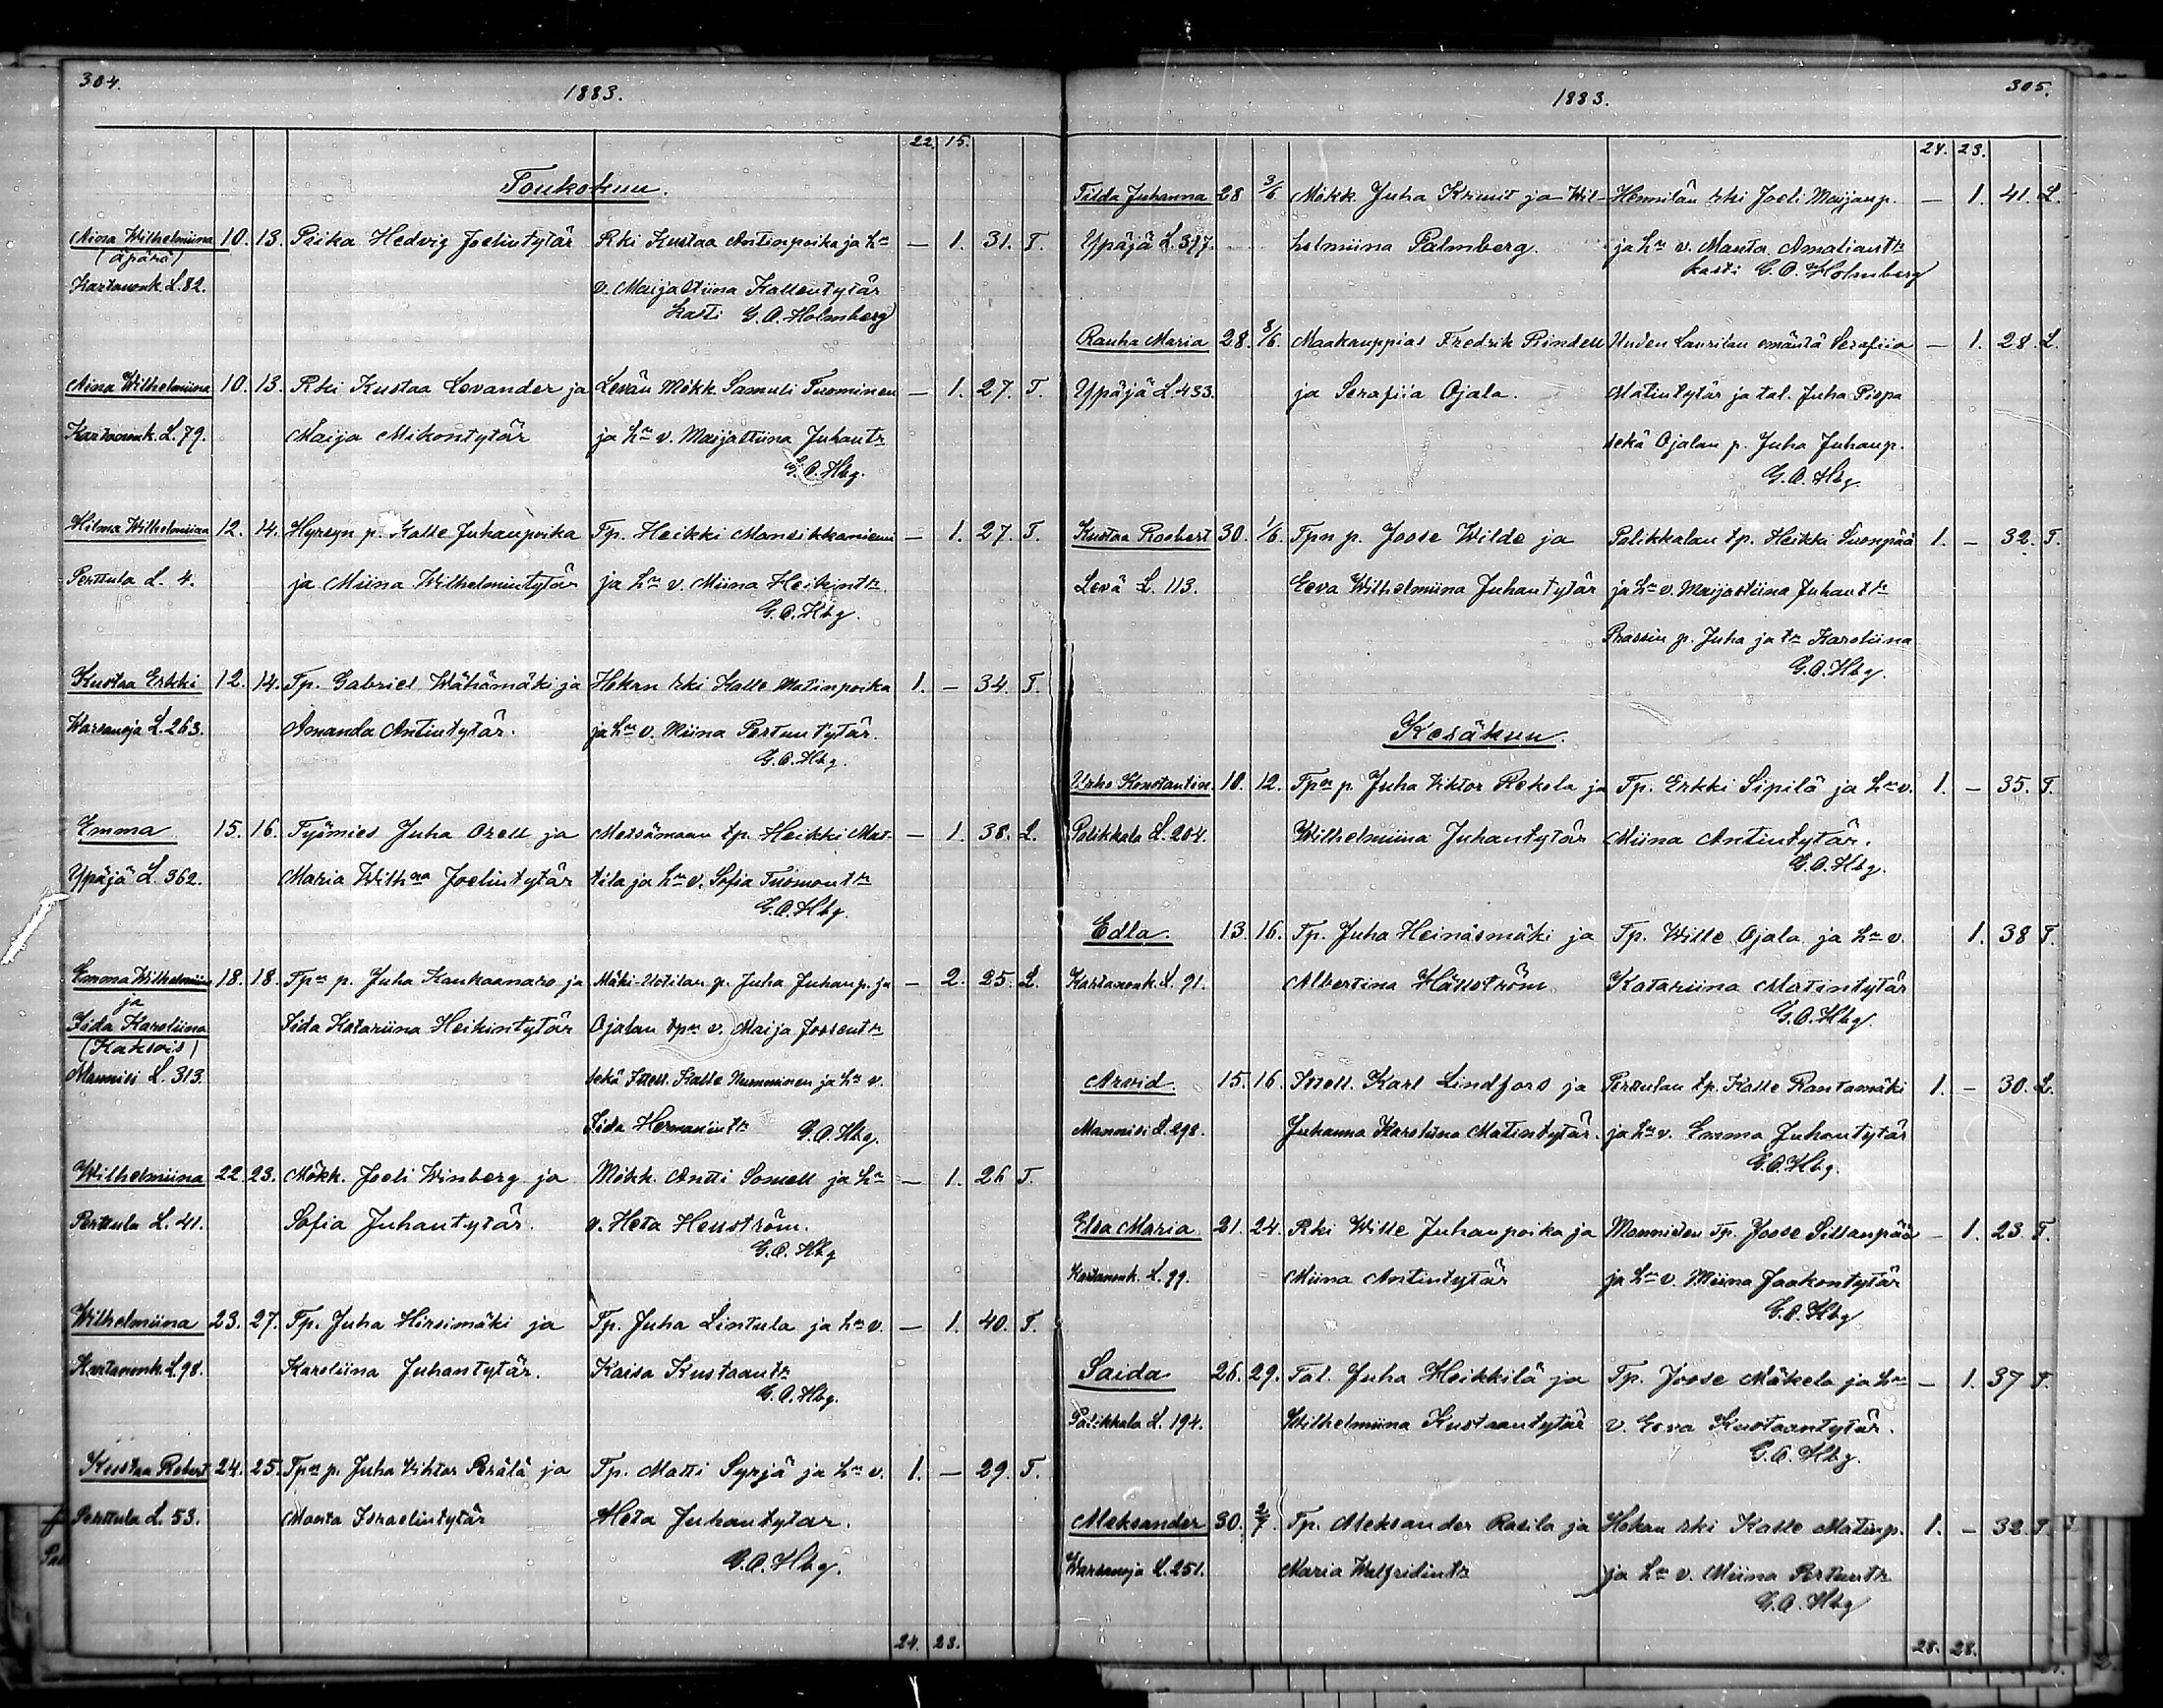 304.
1883.
22. 15.
Toukokuu.
Aina Wilhelmiina 10. 13. Piika Hedvig Joelintytär Rki Kustaa Antinpoika ja hn — 1. 31. T.
(äpärä)
Kartanonk. L. 82. v. Maijastiina Kallentytär
kasti G. A. Holmberg
Aina Wilhelmiina 10. 13. Rki Kustaa Levander ja Levän Mökk. Samuli Tuominen — 1. 27. T.
Kartanonk. L. 79. Maija Mikontytär ja hn v. Maijastiina Juhantr
G. A. Hbg.
Hilma Wilhelmiina 12. 14. Hyrsyn p. Kalle Juhanpoika Tp. Heikki Mansikkaniemi — 1. 27. T.
Perttula L. 4. ja Miina Wilhelmiintytär ja hn v. Miina Heikintr
G. A. Hbg.
Kustaa Erkki 12. 14. Tp. Gabriel Wähämäki ja Hokan rki Kalle Matinpoika 1. — 34. T.
Warsanoja L. 263. Amanda Antintytär. ja hn v. Miina Pertuntytär.
G. A. Hbg.
Emma 15. 16. Työmies Juha Orell ja Metsämaan tp. Heikki Mat- — 1. 38. L.
Ypäjä L. 362. Maria Wilhna Joelintytär tila ja hn v. Sofia Tuomontr
G. A. Hbg.
Emma Wilhelmiina 18. 18. Tpn p. Juha Kankaanaro ja Mäki-Uotilan p. Juha Juhanp. ja — 2. 25. L.
ja
Iida Karoliina Iida Katariina Heikintytär Ojalan tpn v. Maija Joosentr
(Kaksois)
Mannisi L. 313. sekä Itsell. Kalle Numminen ja hn v.
Iida Hermanintr G. A. Hbg.
Wilhelmiina 22. 23. Mökk. Joeli Winberg ja Mökk. Antti Somell ja hn — 1. 26 T.
Perttula L. 41. Sofia Juhantytär. v. Heta Henström.
G. A. Hbg
Wilhelmiina 23. 27. Tp. Juha Hirsimäki ja Tp. Juha Lintula ja hn v. — 1. 40. T.
Kartanonk. L. 98. Karoliina Juhantytär. Kaisa Kustaantr
G. A. Hbg.
Kustaa Robert 24. 25. Tpn p. Juha Vihtor Perälä ja Tp. Matti Syrjä ja hn v. 1. — 29. T.
Perttula L. 53. Manta Israelintytär Heta Juhantytar.
G. A. Hbg.
24. 23.
305.
1883.
24. 23.
Tilda Juhanna 28 3/6 Mökk. Juha Kruut ja Wil- Hennilän rki Joeli Maijanp. — 1. 41. L.
Ypäjä L. 377. helmiina Palmberg. ja hn v. Manta Amaliantr
kasti G. A. Holmberg
Rauha Maria 28. 8/6. Maakauppias Fredrik Rindell Uuden Laurilan emäntä Serafiia — 1. 28. L.
Ypäjä L. 433. ja Serafiia Ojala. Matintytär ja tal. Juha Pispa
sekä Ojalan p. Juha Juhanp.
G. A. Hbg.
Kustaa Roobert 30. 1/6. Tpn p. Joose Wilde ja Palikkalan tp. Heikki Suonpää 1. — 32. T.
Levä L. 113. Eeva Wilhelmiina Juhantytär ja hn v. Maijastiina Juhantr
Prassin p. Juha ja tr Karoliina
G. A. Hbg.
Kesäkuu.
Urho Konstantin. 10. 12. Tpn p. Juha Viktor Rekola ja Tp. Erkki Sipilä ja hn v. 1. — 35. T.
Palikkala L. 204. Wilhelmiina Juhantytär Miina Antintytär.
G. A. Hbg.
Edla. 13. 16. Tp. Juha Heinäsmäki ja Tp. Wille Ojala ja hn v. 1. 38 T.
Kartanonk. L. 91. Albertina Häggström Katariina Matintytär
G. A. Hbg.
Arvid. 15. 16. Itsell. Karl Lindfors ja Perttulan tp. Kalle Rantamäki 1. — 30. L.
Mannisi L. 298. Juhanna Karoliina Matintytär. ja hn v. Emma Juhantytär
G. A. Hbg.
Elsa Maria 21. 24. Rki Wille Juhanpoika ja Mannisten Tp. Joose Sillanpää — 1. 23. T.
Kartanonk. L. 99. Miina Antintytär ja hn v. Miina Jaakontytär
G. A. Hbg
Saida 26. 29. Tal. Juha Heikkilä ja Tp. Joose Mäkela ja hn — 1. 37 T.
Palikkala L. 194. Wilhelmiina Kustaantytär v. Eeva Kustaantytär.
G. A. Hbg.
Aleksander 30. 2/7. Tp. Aleksander Rasila ja Hokan rki Kalle Matinp. 1. — 32. T.
Warsanoja L. 251. Maria Wulfridintr ja hn v. Miina Pertuntr
G. A. Hbg
28. 28.